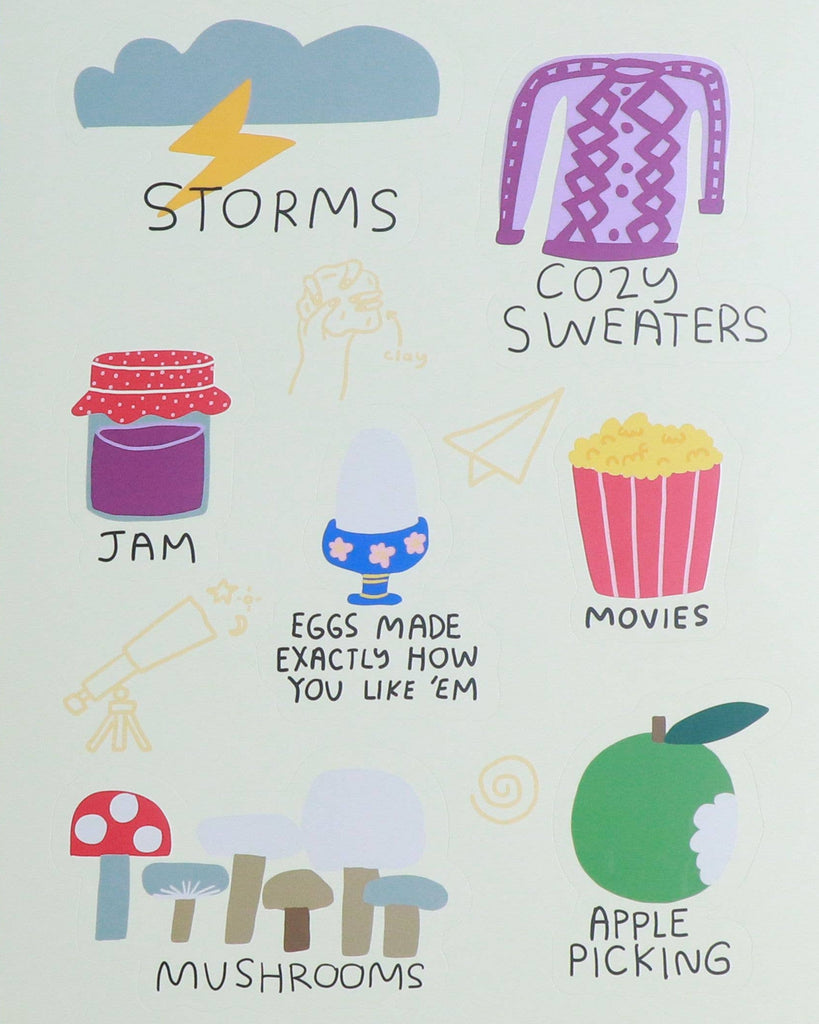 STORMS
COZY
SWEATERS
clay
JAM
EGGS MADE
EXACTLY HOW
YOU LIKE 'EM
MOVIES
MUSHROOMS
APPLE
PICKING